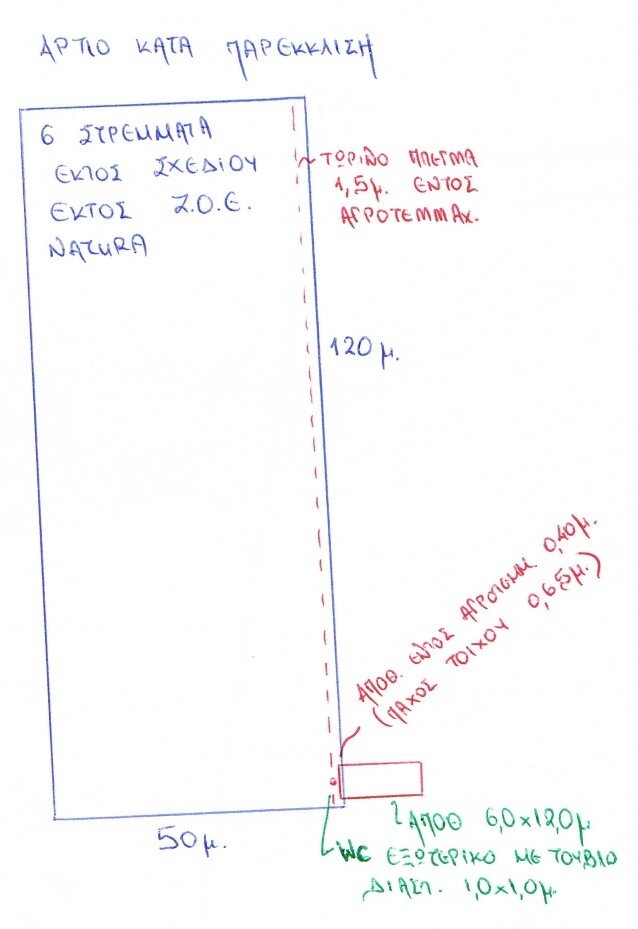 ΑΡΤΙΟ ΚΑΤΑ ΠΑΡΕΚΚΛΙΣΗ
6 ΣΤΡΕΜΜΑΤΑ
ΕΚΤΟΣ ΣΧΕΔΙΟΥ
ΕΚΤΟΣ Ζ.Ο.Ε.
NATURA
ΤΩΡΙΝΟ ΠΛΕΓΜΑ
1,5μ. ΕΝΤΟΣ
ΑΓΡΟΤΕΜΜΑΧ.
120μ.
ΑΠΟΘ. ΕΝΤΟΣ ΑΓΡΟΤΕΜΜ. 0,40μ.
(ΠΑΧΟΣ ΤΟΙΧΟΥ 0,65μ.)
ΑΠΟΘ 6,0x12,0μ
50μ.
WC ΕΞΩΤΕΡΙΚΟ ΜΕ ΤΟΥΒΛΟ
ΔΙΑΣΤ. 1,0x1,0μ.